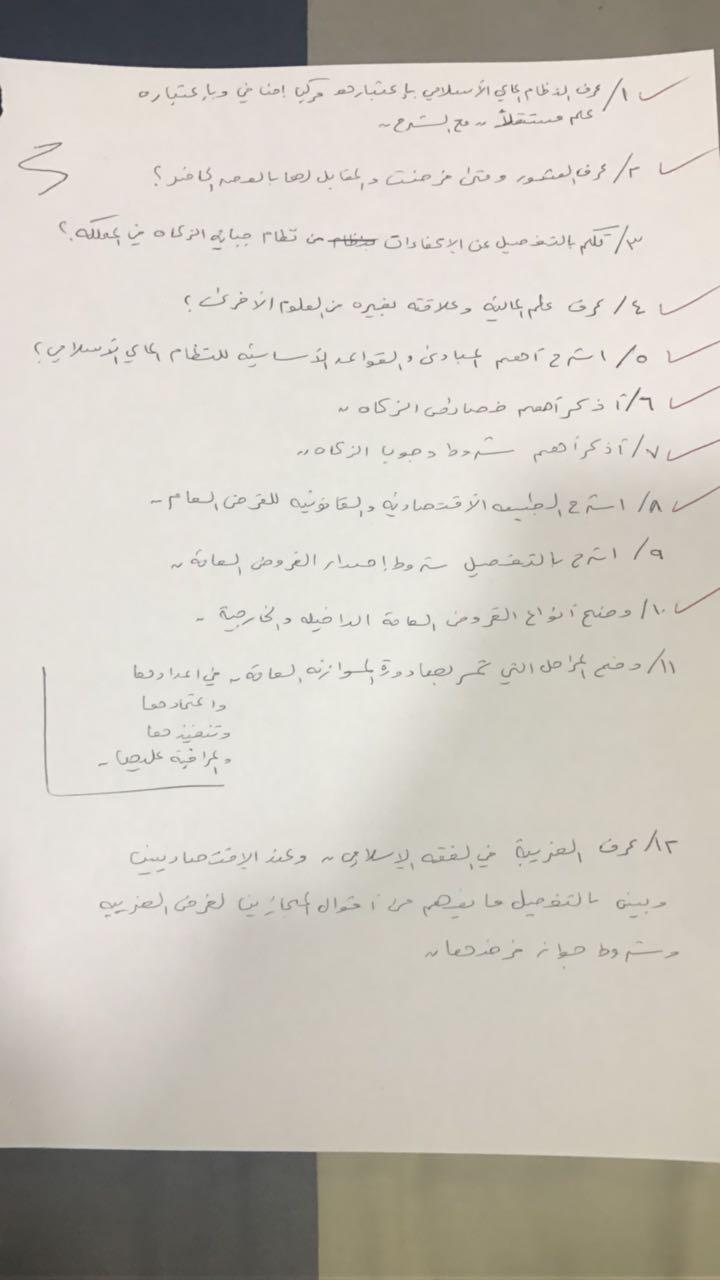 ١/ عرف النظام المالي الأسلامي بإعتباره مركب إضافي وبإعتباره
علم مستقلاً مع الشرح
٢/ عرف العشور ومتى فرضت والمقابل لها بالعصر الحاضر؟
٣/ تكلم بالتفصيل عن الإعفاءات من نظام جباية الزكاه في المملكه؟
٤/ عرف علم المالية وعلاقته بغيره من العلوم الأخرى؟
٥/ اشرح أهم المبادئ والقواعد الأساسية للنظام المالي الإسلامي؟
٦/ أذكر أهم خصائص الزكاه
٧/ أذكر أهم شروط وجوب الزكاه
٨/ اشرح الطبيعه الأقتصادية والقانونيه للقرض العام
٩/ اشرح بالتفصيل شروط إصدار القروض العامة
١٠/ وضح أنواع القروض العامة الداخليه والخارجية
١١/ وضح المراحل التي تمر بها دورة الموازنه العامة في اعدادها
واعتمادها
وتنفيذها
والمراقبة عليها
١٢/ عرف الضريبة في الفقه الإسلامي وعند الاقتصاديين
وبين بالتفصيل ما يفهم من أقوال المجازين لفرض الضريبه
وشروط جواز فرضها